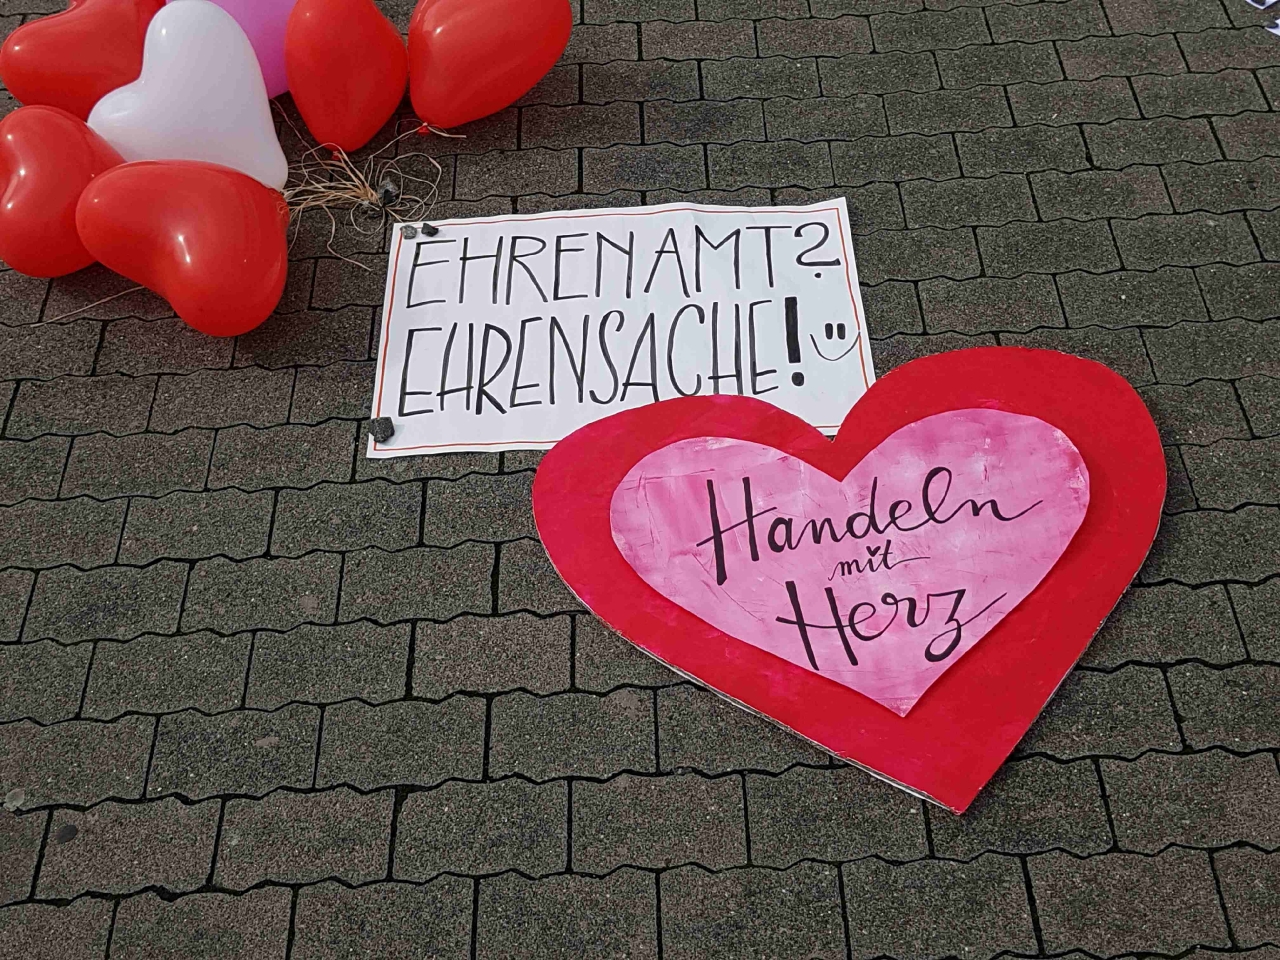 EHRENAMT?
EHRENSACHE!
Handeln
mit
Herz